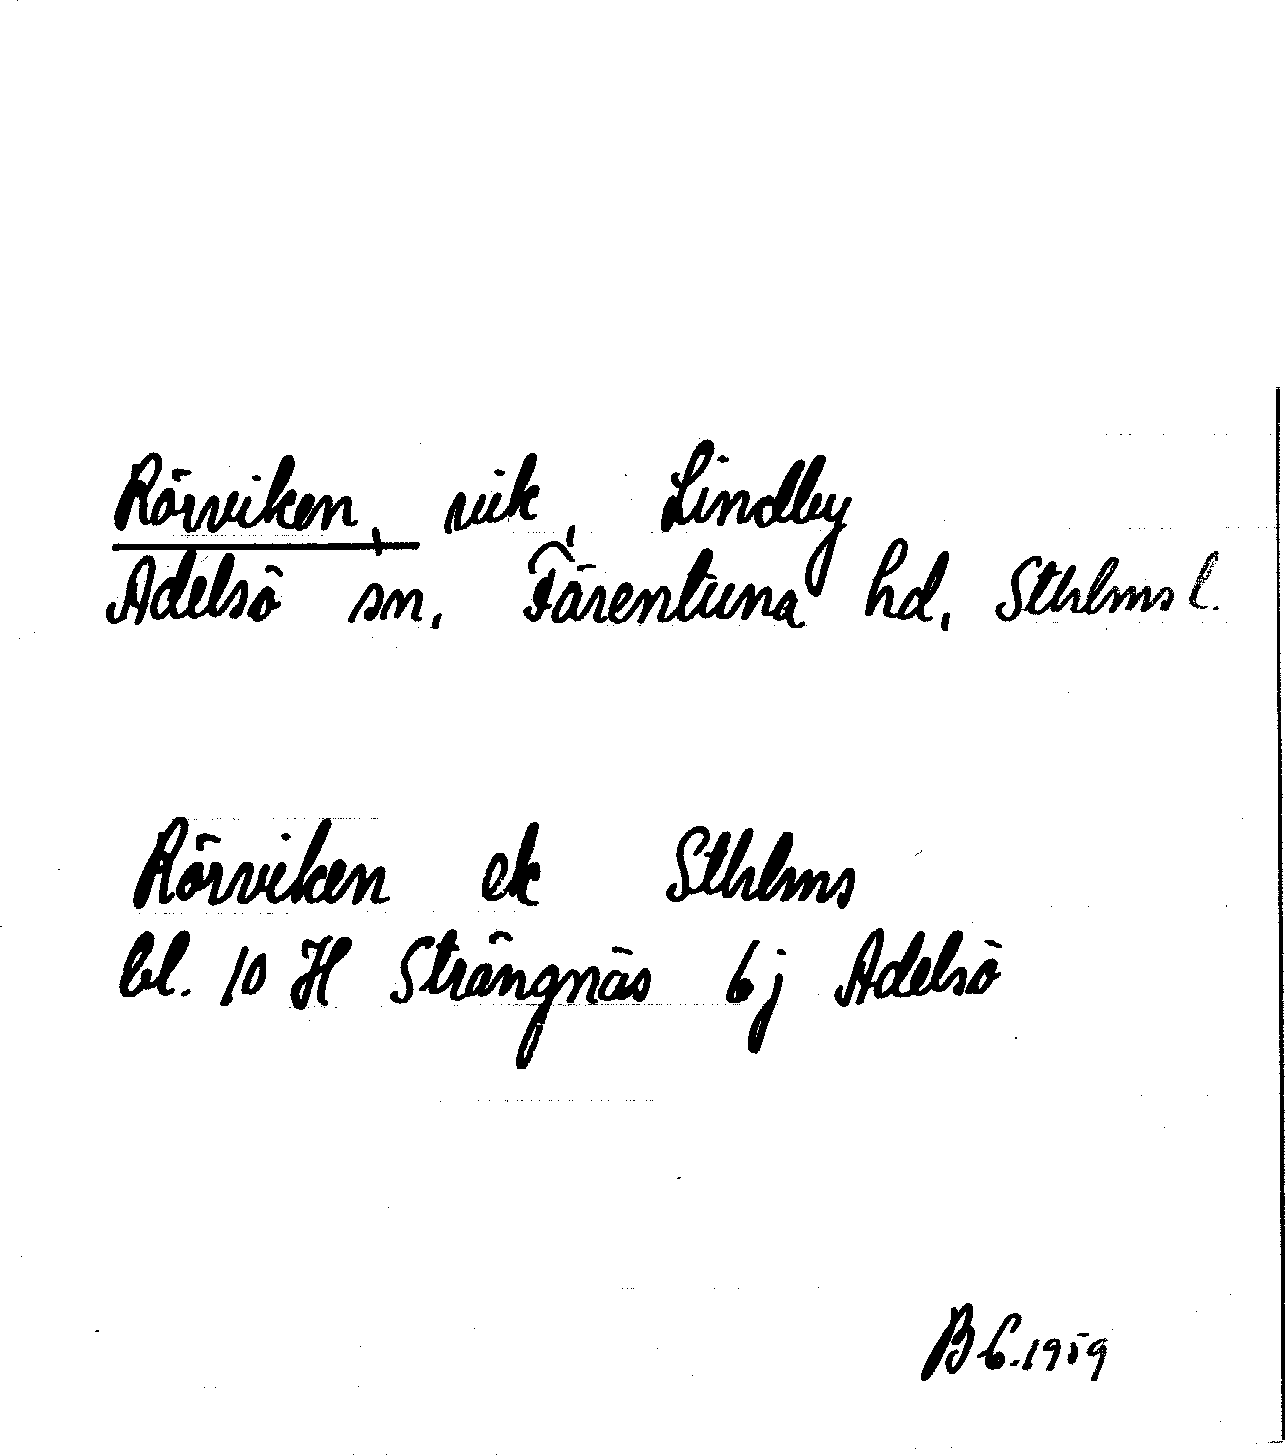 Rörviken, vik, Lindby
Adelsö sn, Färentuna hd, Sthlms l.
Rörviken ek Sthlms
bl. 10 H Strängnäs 6j Adelsö
BG.1959